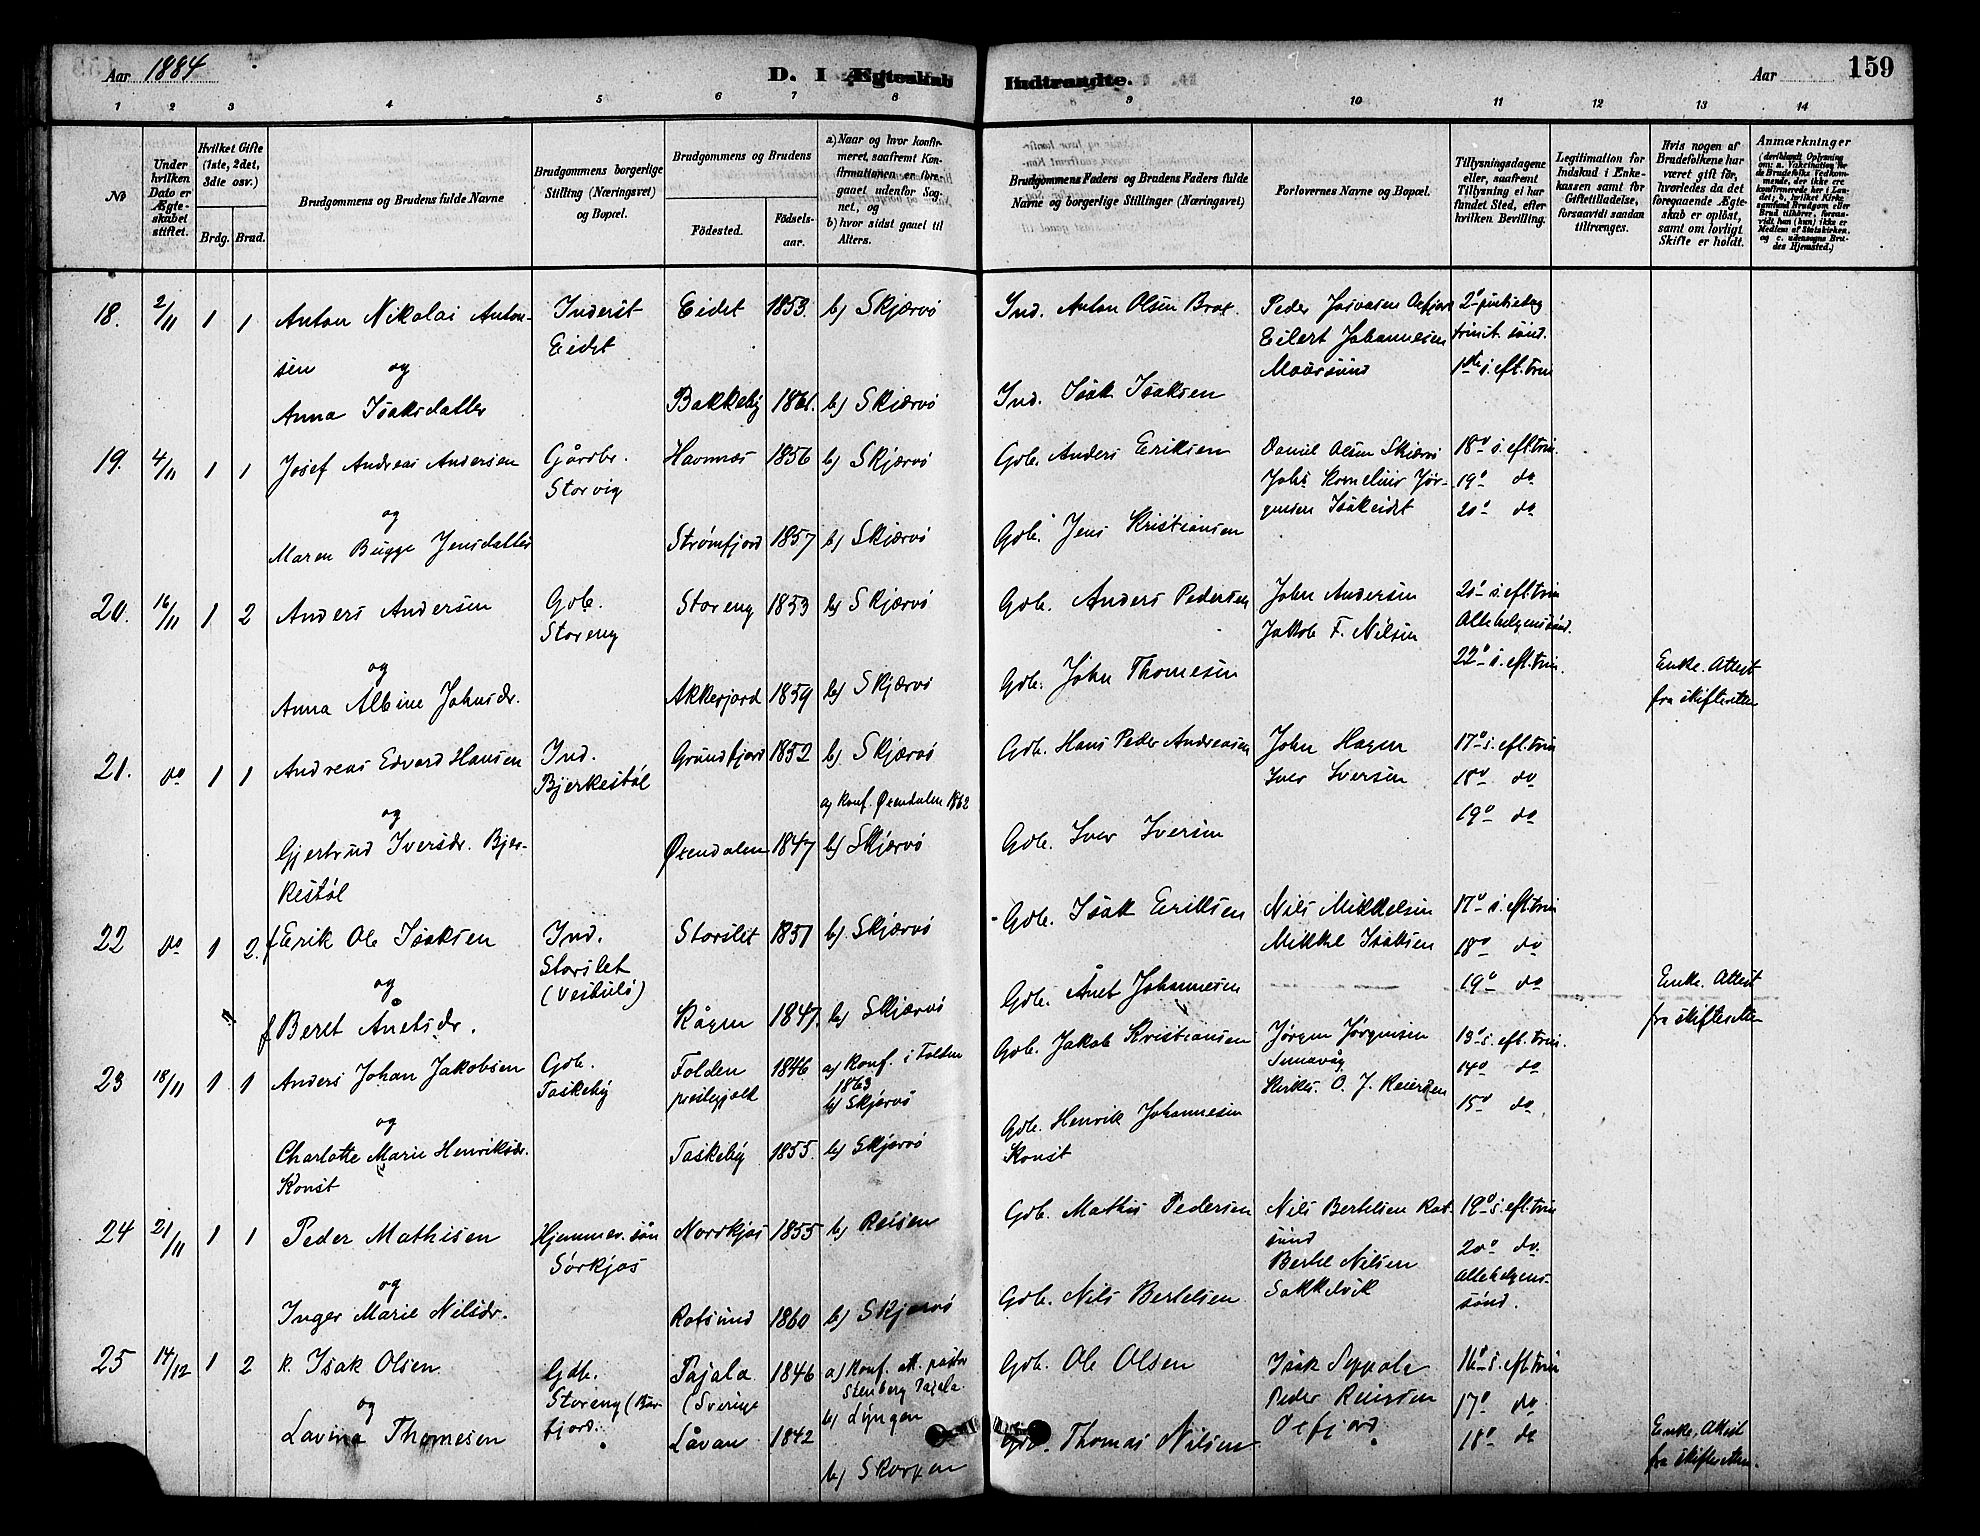 Aar 1884
D. I Ægteskab Indtraadte.
Aar 159
1 2 3 4 5 6 7 8 9 10 11 12 13 14
No
Under hvilken Dato er Ægteskabet stiftet.
Hvilket Gifte (1ste, 2det, 3die osv.)
Brdg. Brud.
Brudgommens og Brudens fulde Navne
Brudgommens borgerlige Stilling (Næringsvei) og Bopæl.
Brudgommens og Brudens
Födested. Födsels-aar.
a) Naar og hvor konfirmeret, saafremt Konfirmationen er foregaaet udenfor Sognet, og
b) hvor sidst gaaet til Alters.
Brudgommens Faders og Brudens Faders fulde Navne og borgerlige Stillinger (Næringsvei)
Forlovernes Navne og Bopæl.
Tillysningsdagene eller, saafremt Tillysning ei har fundet Sted, efter hvilken Bevilling.
Legitimation for Indskud i Enkekassen samt for Giftetilladelse, forsaavidt saadan tiltrænges.
Hvis nogen af Brudefolkene har været gift för, hvorledes da det foregaaende Ægteskab er oplöst, samt om lovligt Skifte er holdt.
Anmærkninger
18. 2/11 1 1 Anton Nikolai Anton- Inderst Eidet 1853. b) Skjærvö Ind. Anton Olsen Brat. Peder
Eidet Eilert Johannesen trinit. sönd.
sen og Maarsund 1ste s. eft. trin
Anna Isaksdatter Bakkeby 1861. b) Skjærvö Ind. Isak Isaksen
19. 4/11 1 1 Josef Andreas Andersen Gårdbr. Havnnæs 1856 b) Skjærvö Gdb. Anders Eriksen Daniel Olsen Skjærvö 18de s. eft. trin.
Storvig Johs Kornelius Jör- 19de do
og gensen Isakeidet 20de do
Maren Bugge Jensdatter Strömfjord 1857 b) Skjærvö Gdb. Jens Kristiansen
20. 16/11 1 2 Anders Andersen Gdb. Storeng 1853 b) Skjærvö Gdb. Anders Pedersen John Andersen s. eft. trin
Storeng Jakob F. Nilsen Allehelgenssönd.
og 22de s. eft. trin. Enke. Attest
Anna Albine Johnsdr. Akkerjord 1859 b) Skjærvö Gdb. John Thomesen fra skifteretten
21. do 1 1 Andreas Edvard Hansen Ind. Grundfjord 1852 b) Skjærvö Gdb. Hans Peder Andreasen John Hagen 17de s. eft. trin
Bjerkestöl Iver Iversen 18de do
og a) Konf. Öxendalen 1862 19de do
Gjertrud Iversdr. Bjer- Öxendalen 1847 b) Skjærvö Gdb. Iver Iversen
kestöl
22 do 1 2. f Erik Ole Isaksen Ind. Storslet 1851 b) Skjærvö Gdb. Isak Eriksen Nils Mikkelsen 17de s. eft. trin
Storslet Mikkel Isaksen 18de do
og 19de do Enke. Attest
f Beret Ånetsdr. Kågen 1847. b) Skjærvö Gdb. Ånet Johannesen fra skifteretten
23 18/11 1 1 Anders Johan Jakobsen Gdb. Folden 1846 a) Konf. i Folden Gdb. Jakob Kristiansen Jörgen Jörgensen 13de s. eft. trin.
Taskeby prestegjeld 1863 14de do
b) Skjærvö O. J. Reiersen
og 15de do
Charlotte Marie Henriksdr. Taskeby 1855. b) Skjervö Gdb. Henrik Johannesen
Konst Konst
24 21/11 1 1 Peder Mathisen Hjemmev. sön Nordkjos 1855 b) Reisen Gdb. Mathis Pedersen Nils Bertelsen Rot- 19de s. eft. trin
Sörkjos sund 20de do.
og Bertel Nilsen Allehelgens-
Inger Marie Nilsdr. Rotsund 1860 b) Skjærvö Gdb. Nils Bertelsen Sakkelvik sönd.
25 14/12 1 2 k. Isak Olsen Gdb. Pajala 1846 a) Konf. att. pastor Gdb. Ole Olsen Isak Seppala 16de s. eft. trin
Storeng (Bur- (Sverige Stenberg Pajala Peder Reiersen 17de do
og fjord. b) Lyngen Oxfjord. 18de do Enke, Attest
Lavina Thomesen Låvan 1842 b) Skorpen Gdb. Thomas Nilsen fra skifteretten.